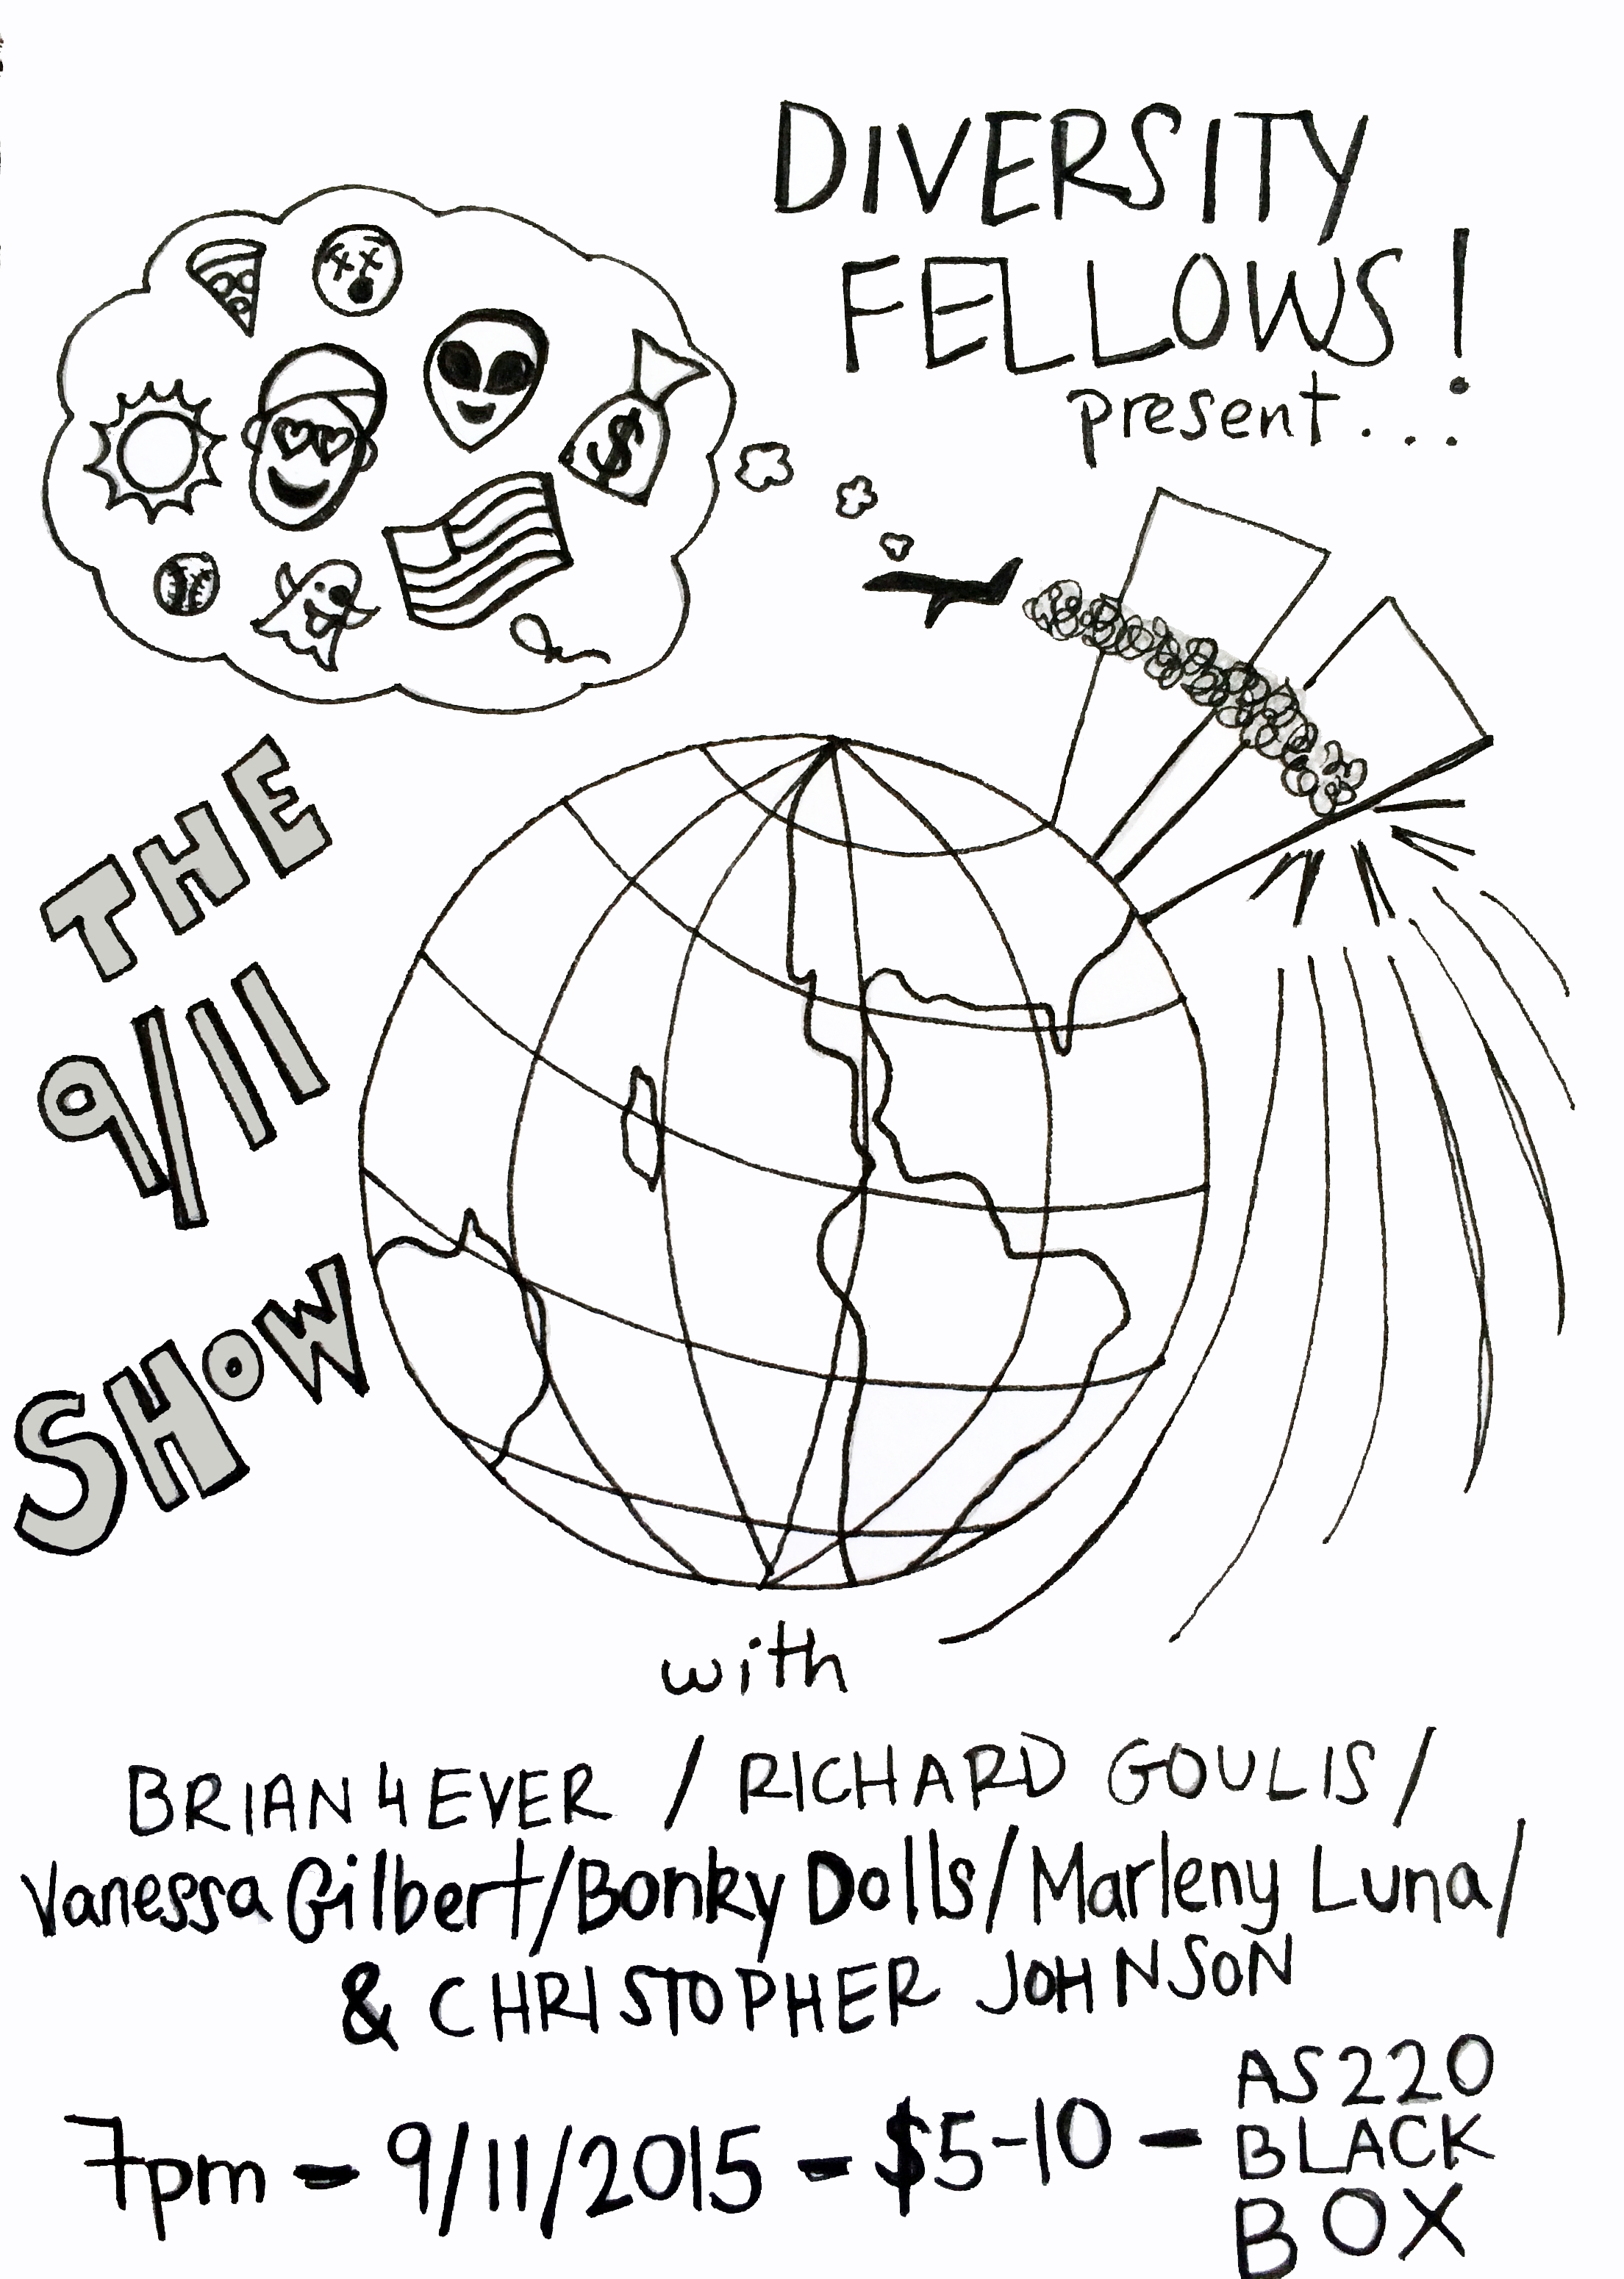 DIVERSITY
FELLOWS!
present...
$
THE
9/11
SHOW
with
BRIAN4EVER / RICHARD GOULIS/
Vanessa Gilbert/Bonky Dolls/Marleny Luna/
& CHRISTOPHER JOHNSON
7pm - 9/11/2015 - $5-10 - AS220
BLACK
BOX